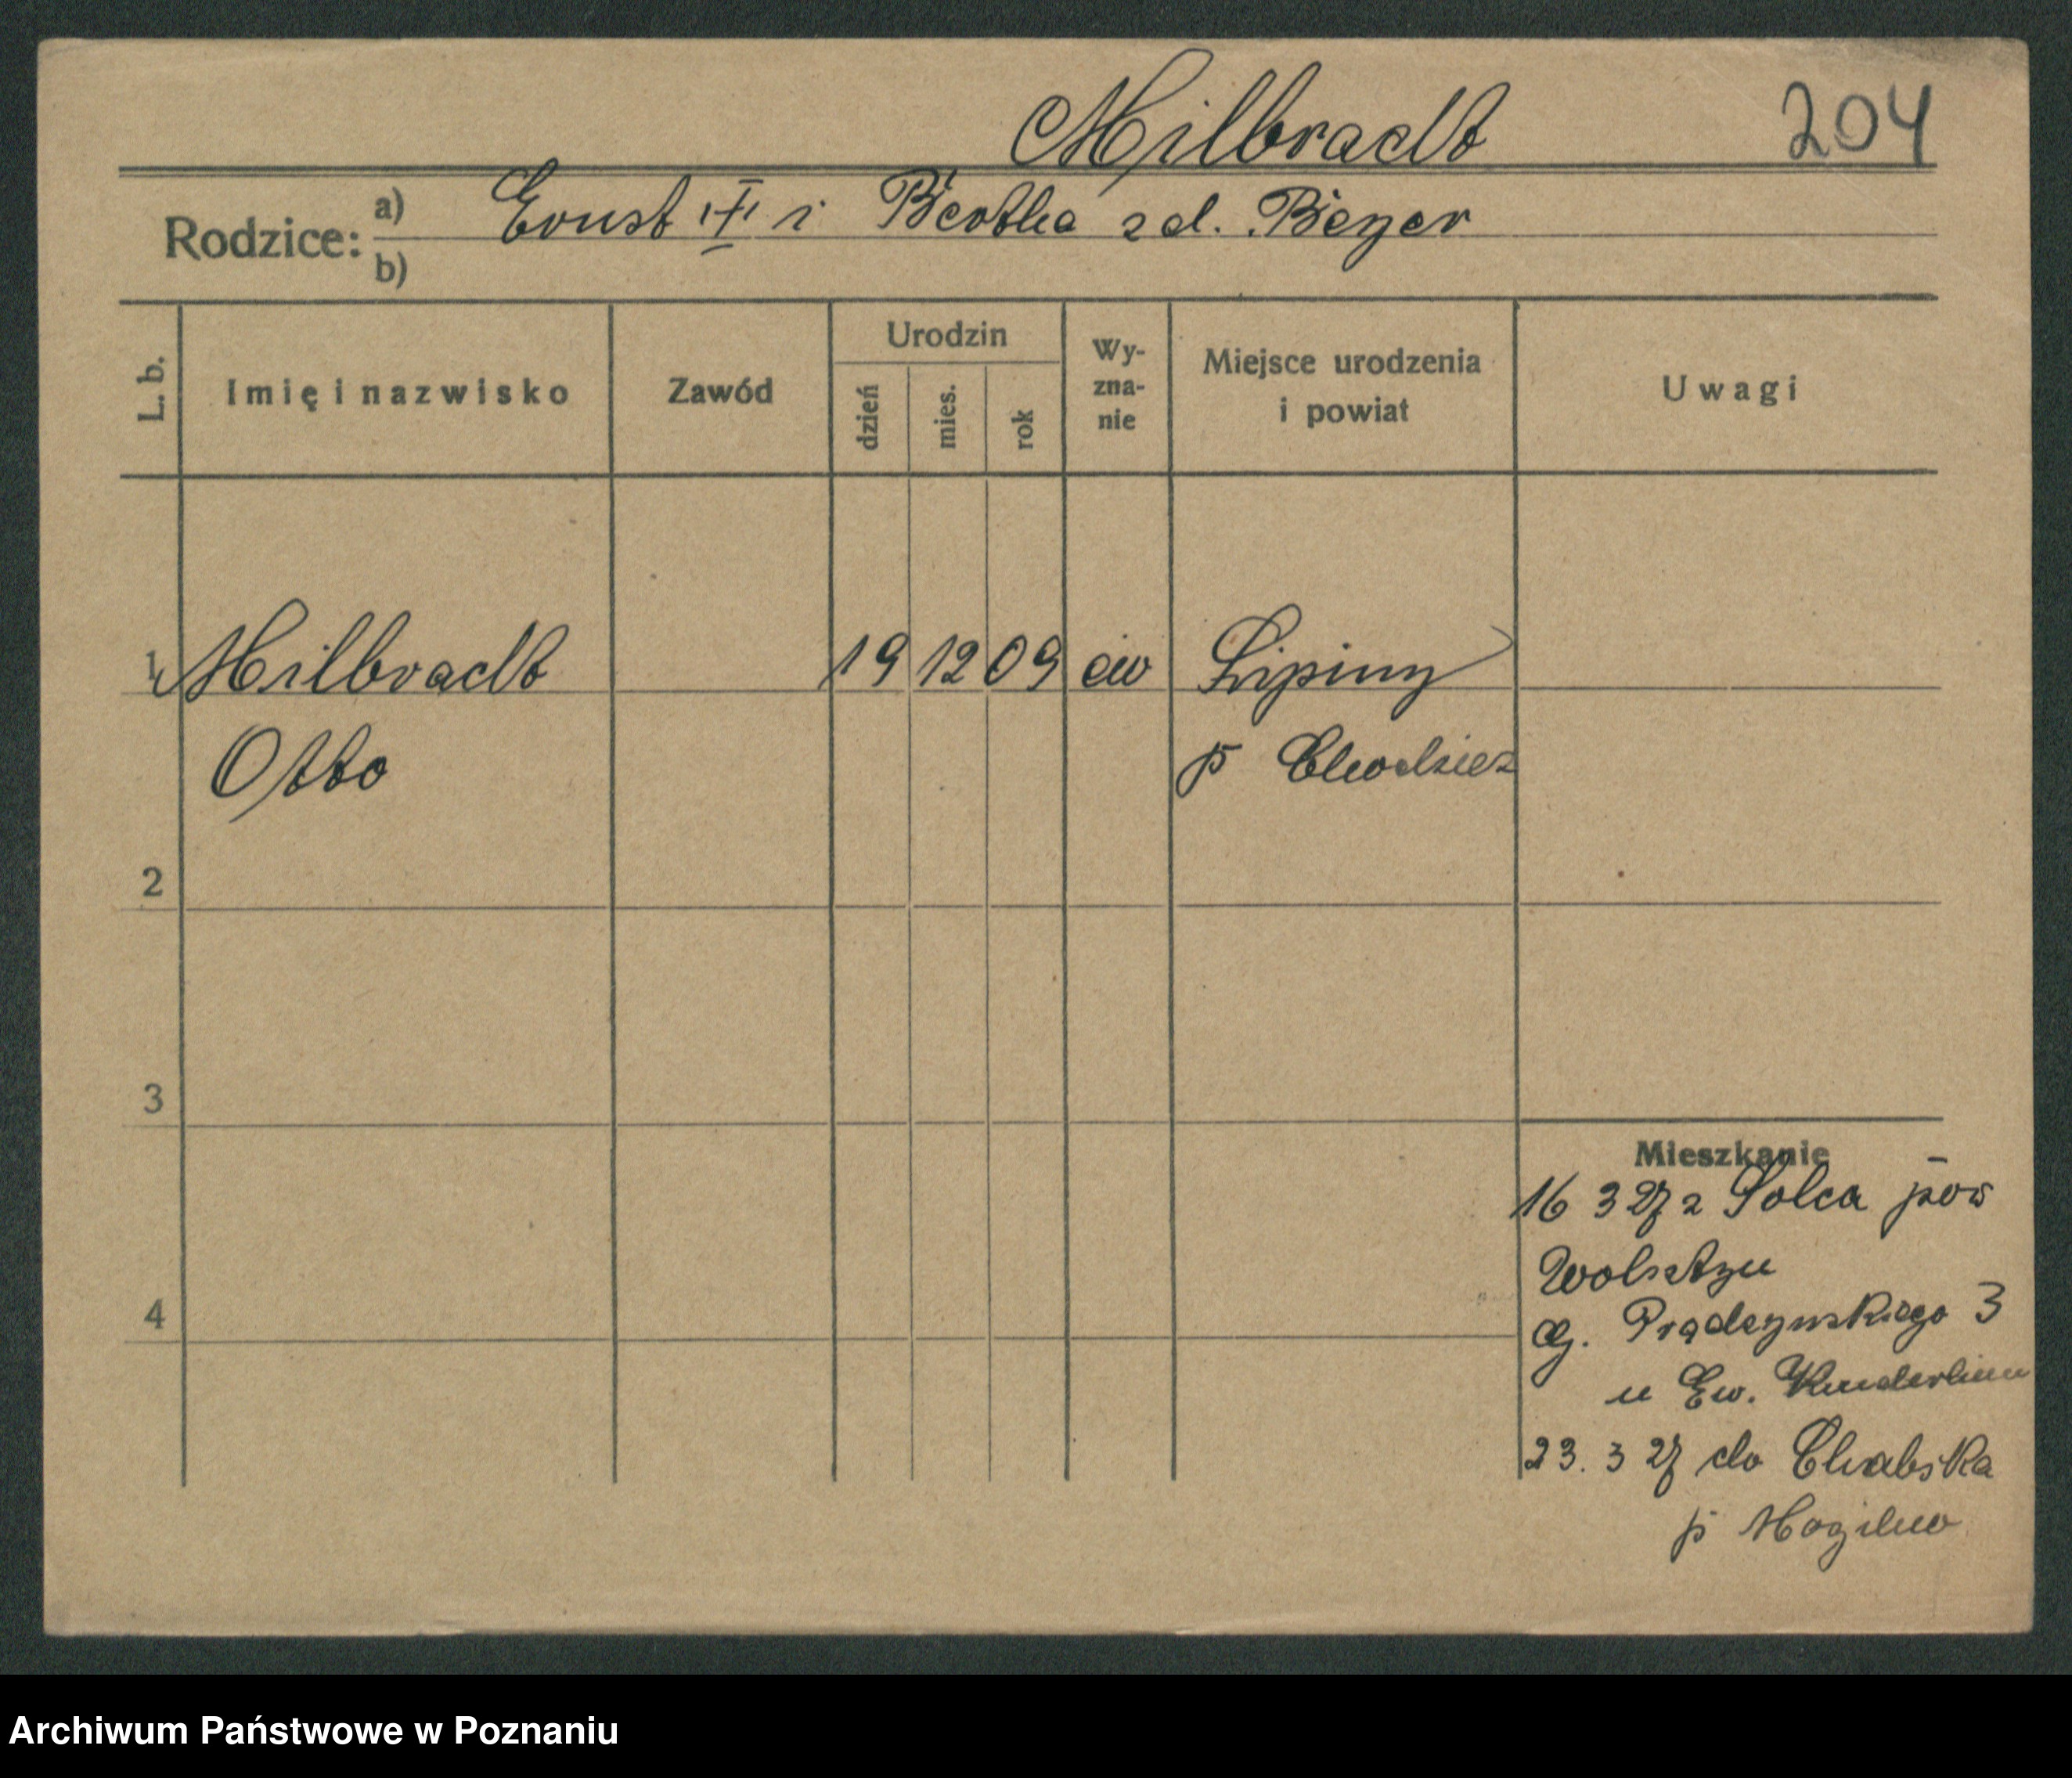 Milbradt 204
Rodzice: a) Ernst i Bertha z d. Beyer
b)
L. b. Imię i nazwisko Zawód Urodzin dzień mies. rok Wy-zna-nie Miejsce urodzenia i powiat Uwagi
1 Milbradt 19 12 09 ew Lipiny
Otto p Chodzież
2
3
Mieszkanie
16 3 27 z Solca pow
Wolsztyn
4
g. Prądzyńskiego 3
u Ew.
23. 3 27 do Chabska
p Mogilno
Archiwum Państwowe w Poznaniu